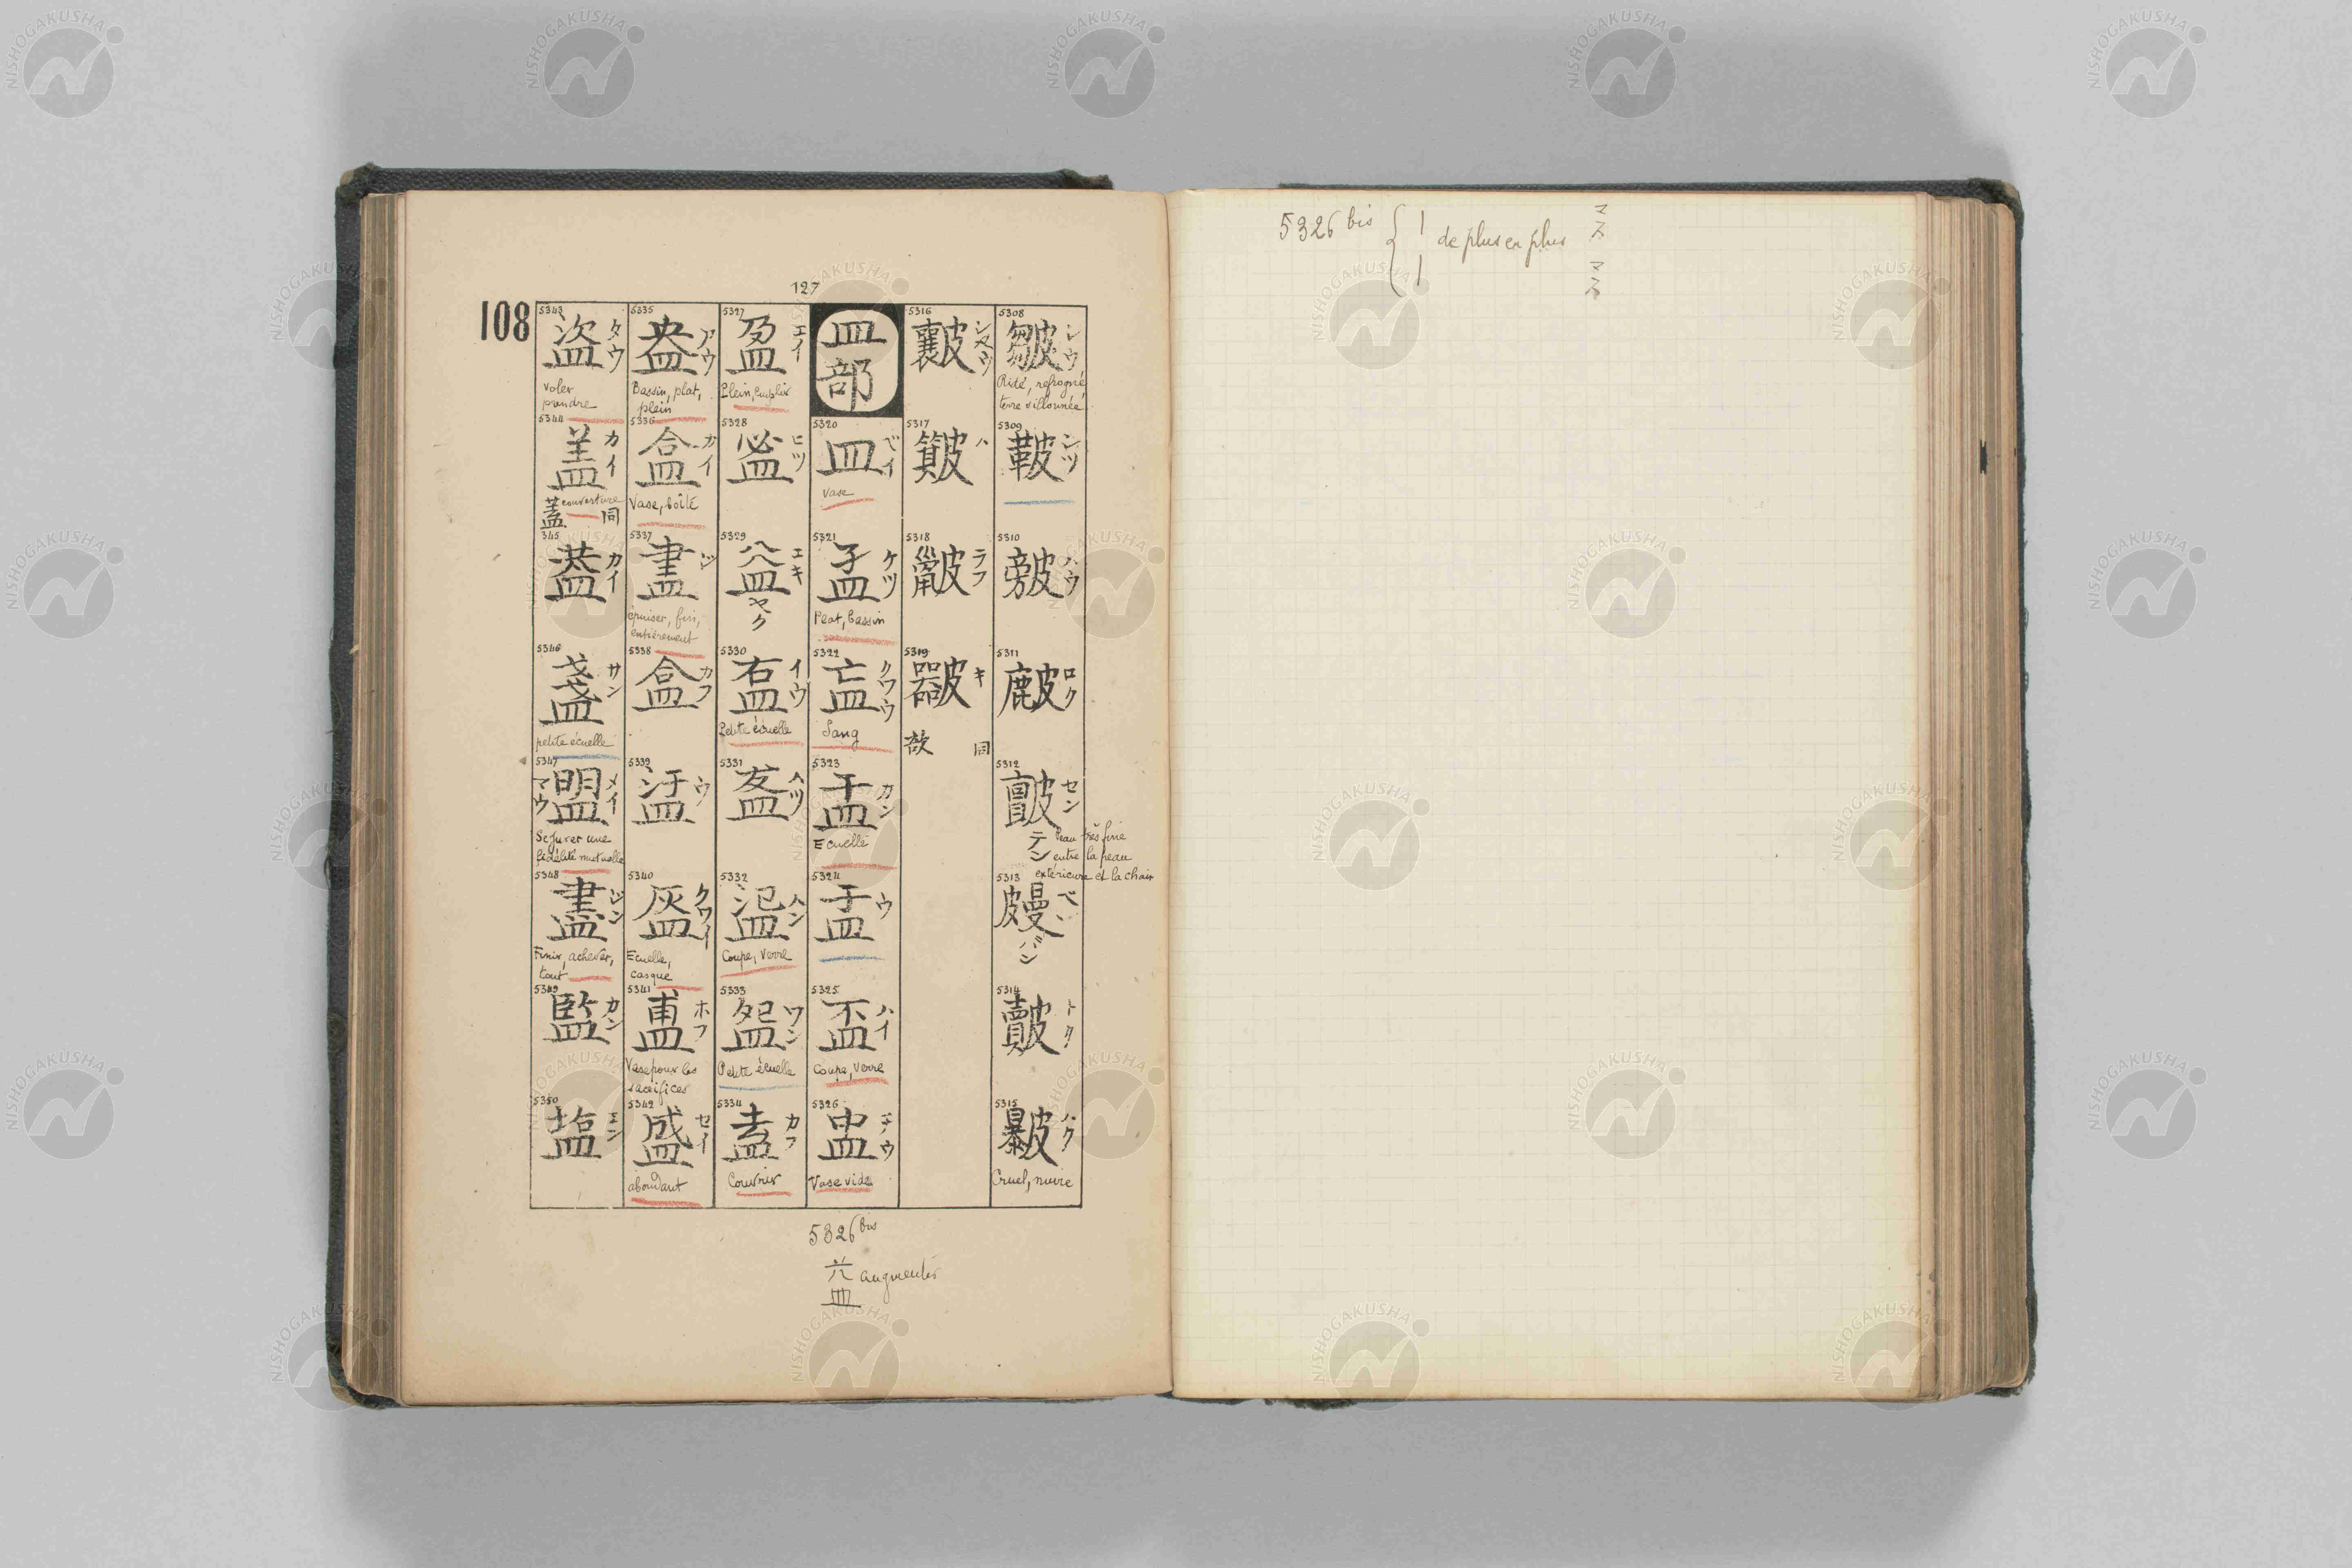 127
108
5308
皺
シウ
Ridé, refrogné,
terre sillonnée
5309
シツ
5310
ハウ
5311
ロク
5312
セン
テン
Peau très fine
entre la peau
extérieure et la chair
5313
ベン
バン
5314
トク
5315
ハク
Cruel, nuire
5316
シヤウ
5317
ハ
5318
ラフ
5319
キ
同
皿部
5320
皿
ベイ
vase
5321
孟
ケツ
Plat, bassin
5322
クワウ
Sang
5323
カン
Ecuelle
5324
盂
ウ
5325
盃
ハイ
Coupe, verre
5326
盅
チウ
Vase vide
5327
盈
エイ
Plein, emplir
5328
ヒツ
5329
益
エキ
ヤク
5330
イウ
Petite écuelle
5331
ハツ
5332
ハン
Coupe, verre
5333
ワン
Petite écuelle
5334
盍
カフ
Couvrir
5335
盎
アウ
Bassin, plat,
plein
5336
盒
カイ
Vase, boîte
5337
ジン
épuiser, fin,
entièrement
5338
盒
カフ
5339
ウ
5340
盔
クワイ
Ecuelle,
casque
5341
ホフ
Vase pour les
sacrifices
5342
盛
セイ
abondant
5343
盗
タウ
voler
prendre
5344
盖
カイ
couverture
蓋 同
345
カイ
5346
盞
サン
petite écuelle
5347
盟
メイ
マウ
Se jurer une
fidélité mutuelle
5348
盡
ジン
Finir, achever,
tout
5349
監
カン
5350
塩
エン
5326 bis
益 augmenter
5326 bis { | de plus en plus マス
| マス
NISHOGAKUSHA